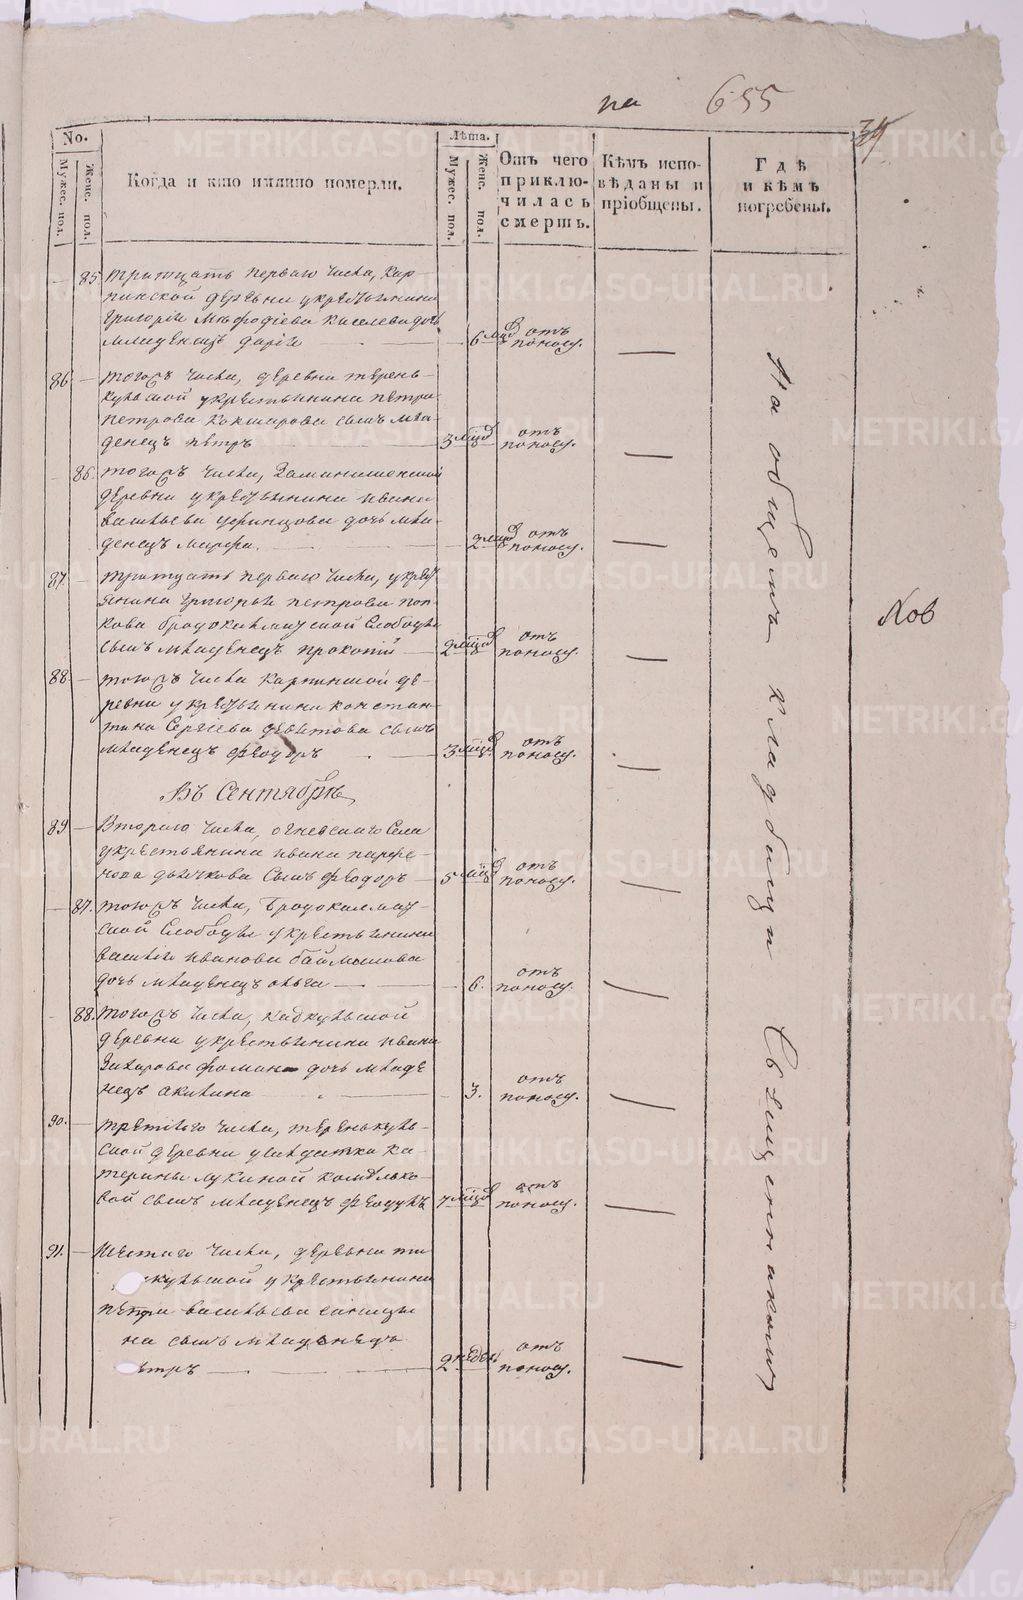 на 655
34
No.
Мужес. пол.
Женс. пол.
Когда и кто имянно померли.
Лѣта.
Мужес. пол.
Женс. пол.
Отъ чего
приклю-
чилась
смерть.
Кѣмъ испо-
вѣданы и
пріобщены.
Гдѣ
и кѣмъ
погребены.
85 тритцать перваго числа, Кар-
пинской деревни у крестьянина
григорія Меѳодіева Киселева дочь
младенецъ дарія 6 отъ
поносу.
86 тогожъ числа, деревни терень-
кульской у крестьянина петра
петрова Кокшарова сынъ мла-
денецъ петръ 3 отъ
поносу.
86. тогожъ числа,
деревни у крестьянина ивана
васильева дочь мла-
денецъ марфа. 2 отъ
поносу.
87. тритцать перваго числа, у крест
янина григорья петрова поп-
кова бродокалмацкой слободы
сынъ младенецъ прокопій 2 отъ
поносу.
88. тогожъ числа Карпинской де-
ревни у крестьянина констан-
тина Сергіева сынъ
младенецъ ѳеодоръ 3 отъ
поносу.
Въ Сентябрѣ
89 Втораго числа, огневскаго Села
у крестьянина ивана парѳе-
нова дьячкова сынъ ѳеодоръ 5 отъ
поносу.
87. тогожъ числа, Бродокалмац-
ской Слободы у крестьянина
василія иванова
дочь младенецъ ольга 6. отъ
поносу.
88. тогожъ числа, кадкульской
деревни у крестьянина ивана
Захарова дочь младе
нецъ акилина 3. отъ
поносу.
90. третьяго числа, теренькуль-
ской деревни у салдатки ка-
терины лукиной
вой сынъ младенецъ 7 отъ
поносу.
91. шестаго числа, деревни ти
кульской у крестьянина
петра васильева синицы
на сынъ младенецъ
етръ 2 недель отъ
поносу.
На общемъ кладбищи Священникомъ
ков
METRIKI.GASO-URAL.RU